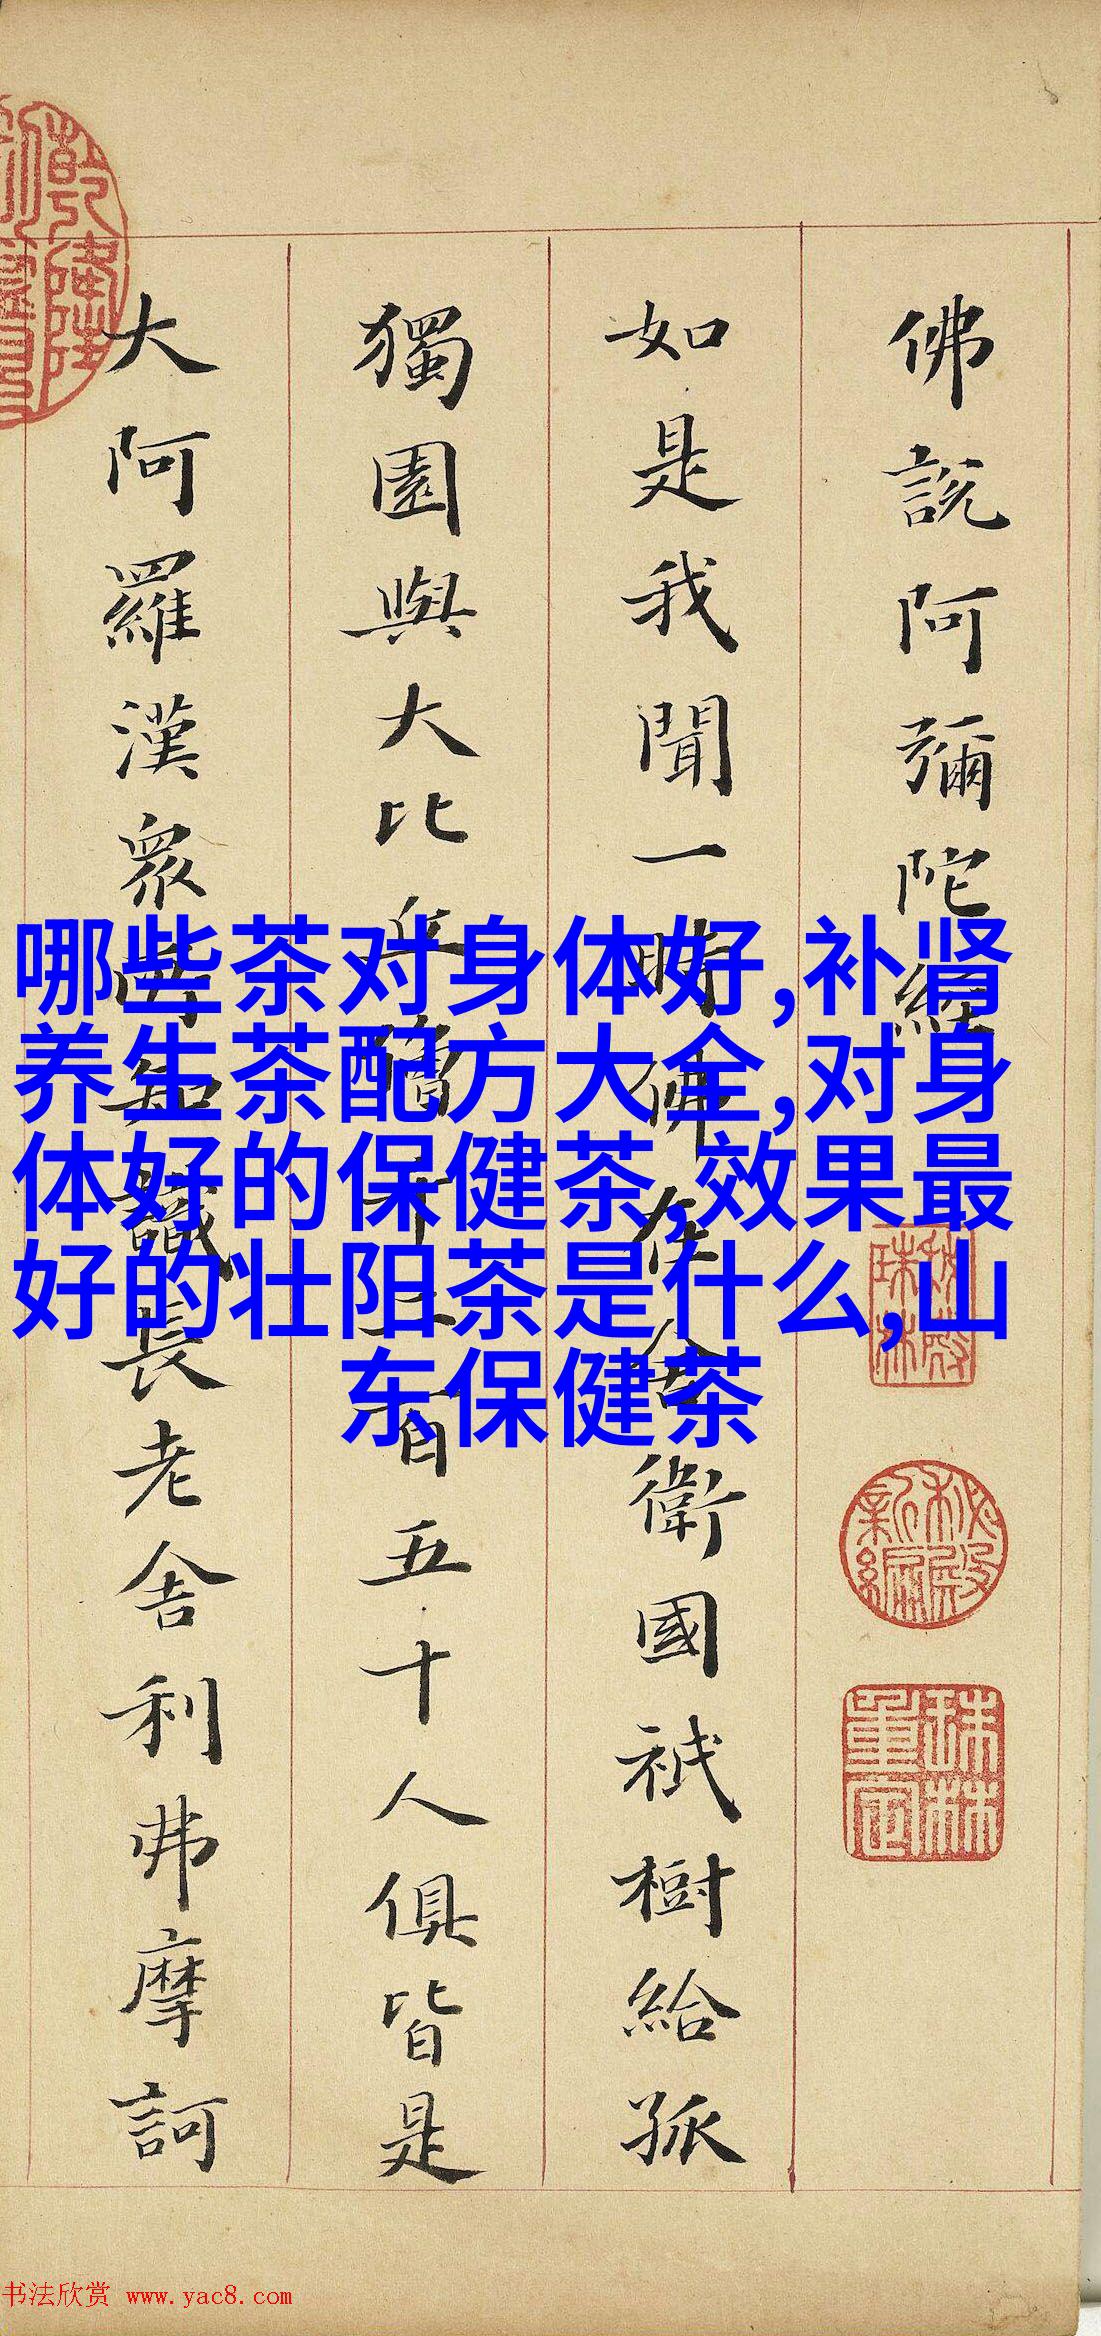 佛說阿彌陀經
如是我聞一時佛在舍衛國祇樹給孤
獨園與大比丘僧千二百五十人俱皆是
大阿羅漢衆所知識長老舍利弗摩訶
哪些茶对身体好,补肾
养生茶配方大全,对身
体好的保健茶,效果最
好的壮阳茶是什么,山
东保健茶
乾隆
秘殿珠林
秘殿新編
珠林重定
书法欣赏 www.yac8.com